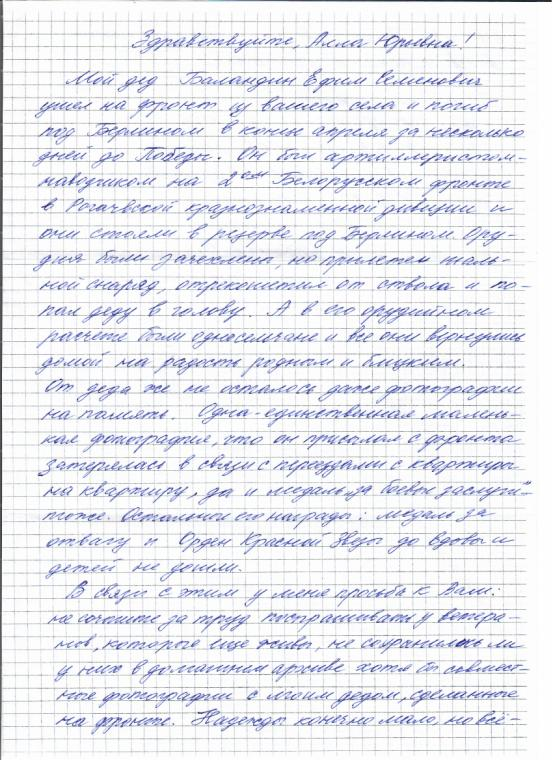 Здравствуйте, Алла Юрьевна!
Мой дед Баландин Ефим Семенович
ушел на фронт из вашего села и погиб
под Берлином в конце апреля за несколько
дней до Победы. Он был артиллеристом-
наводчиком на 2ом Белорусском фронте
в Рогачевской краснознаменной дивизии и
они стояли в резерве под Берлином. Ору-
дия были зачехлены, но прилетел шаль-
ной снаряд, отрекошетил от ствола и по-
пал деду в голову. А в его орудийном
расчете были односельчане и все они вернулись
домой на радость родным и близким.
От деда же не осталось даже фотографии
на память. Одна-единственная малень-
кая фотография, что он присылал с фронта
затерялась в связи с переездами с квартиры
на квартиру, да и медаль „за боевые заслуги"-
тоже. Остальные его награды: медаль за
отвагу и Орден Красной Звезды до вдовы и
детей не дошли.
В связи с этим у меня просьба к Вам:
не сочтите за труд поспрашивать у ветера-
нов, которые еще живы, не сохранилось ли
у них в домашнем архиве хотя бы совмест-
ные фотографии с моим дедом, сделанные
на фронте. Надежды конечно мало, но всё-